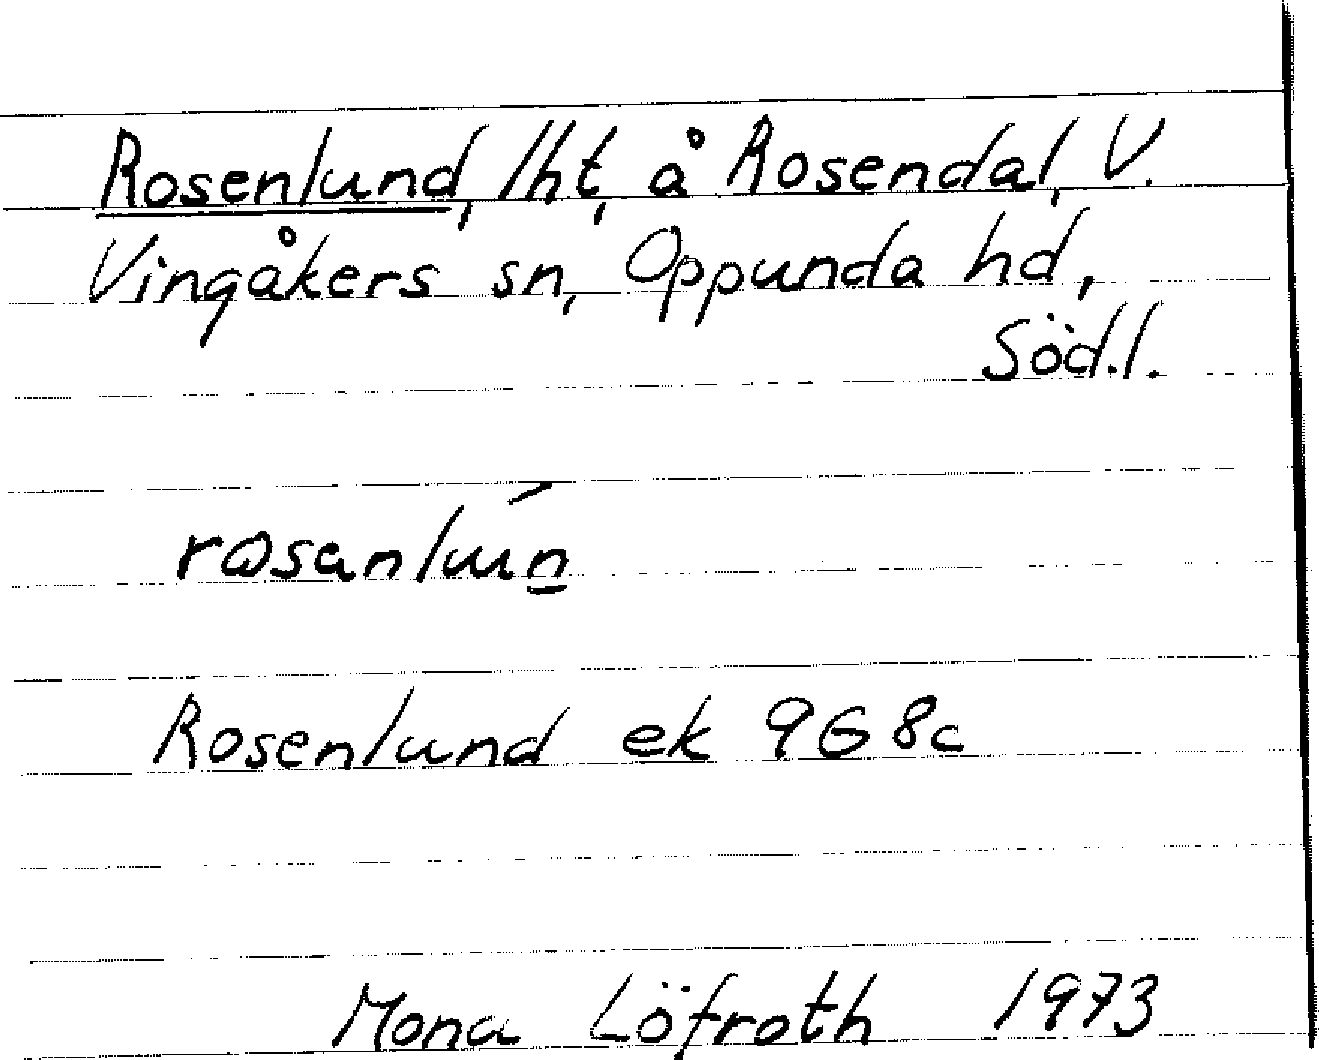 Rosenlund, lht, å Rosendal, V.
Vingåkers sn, Oppunda hd,
Söd.l.
Rosenlund ek 9G 8c
Mona Löfroth 1973